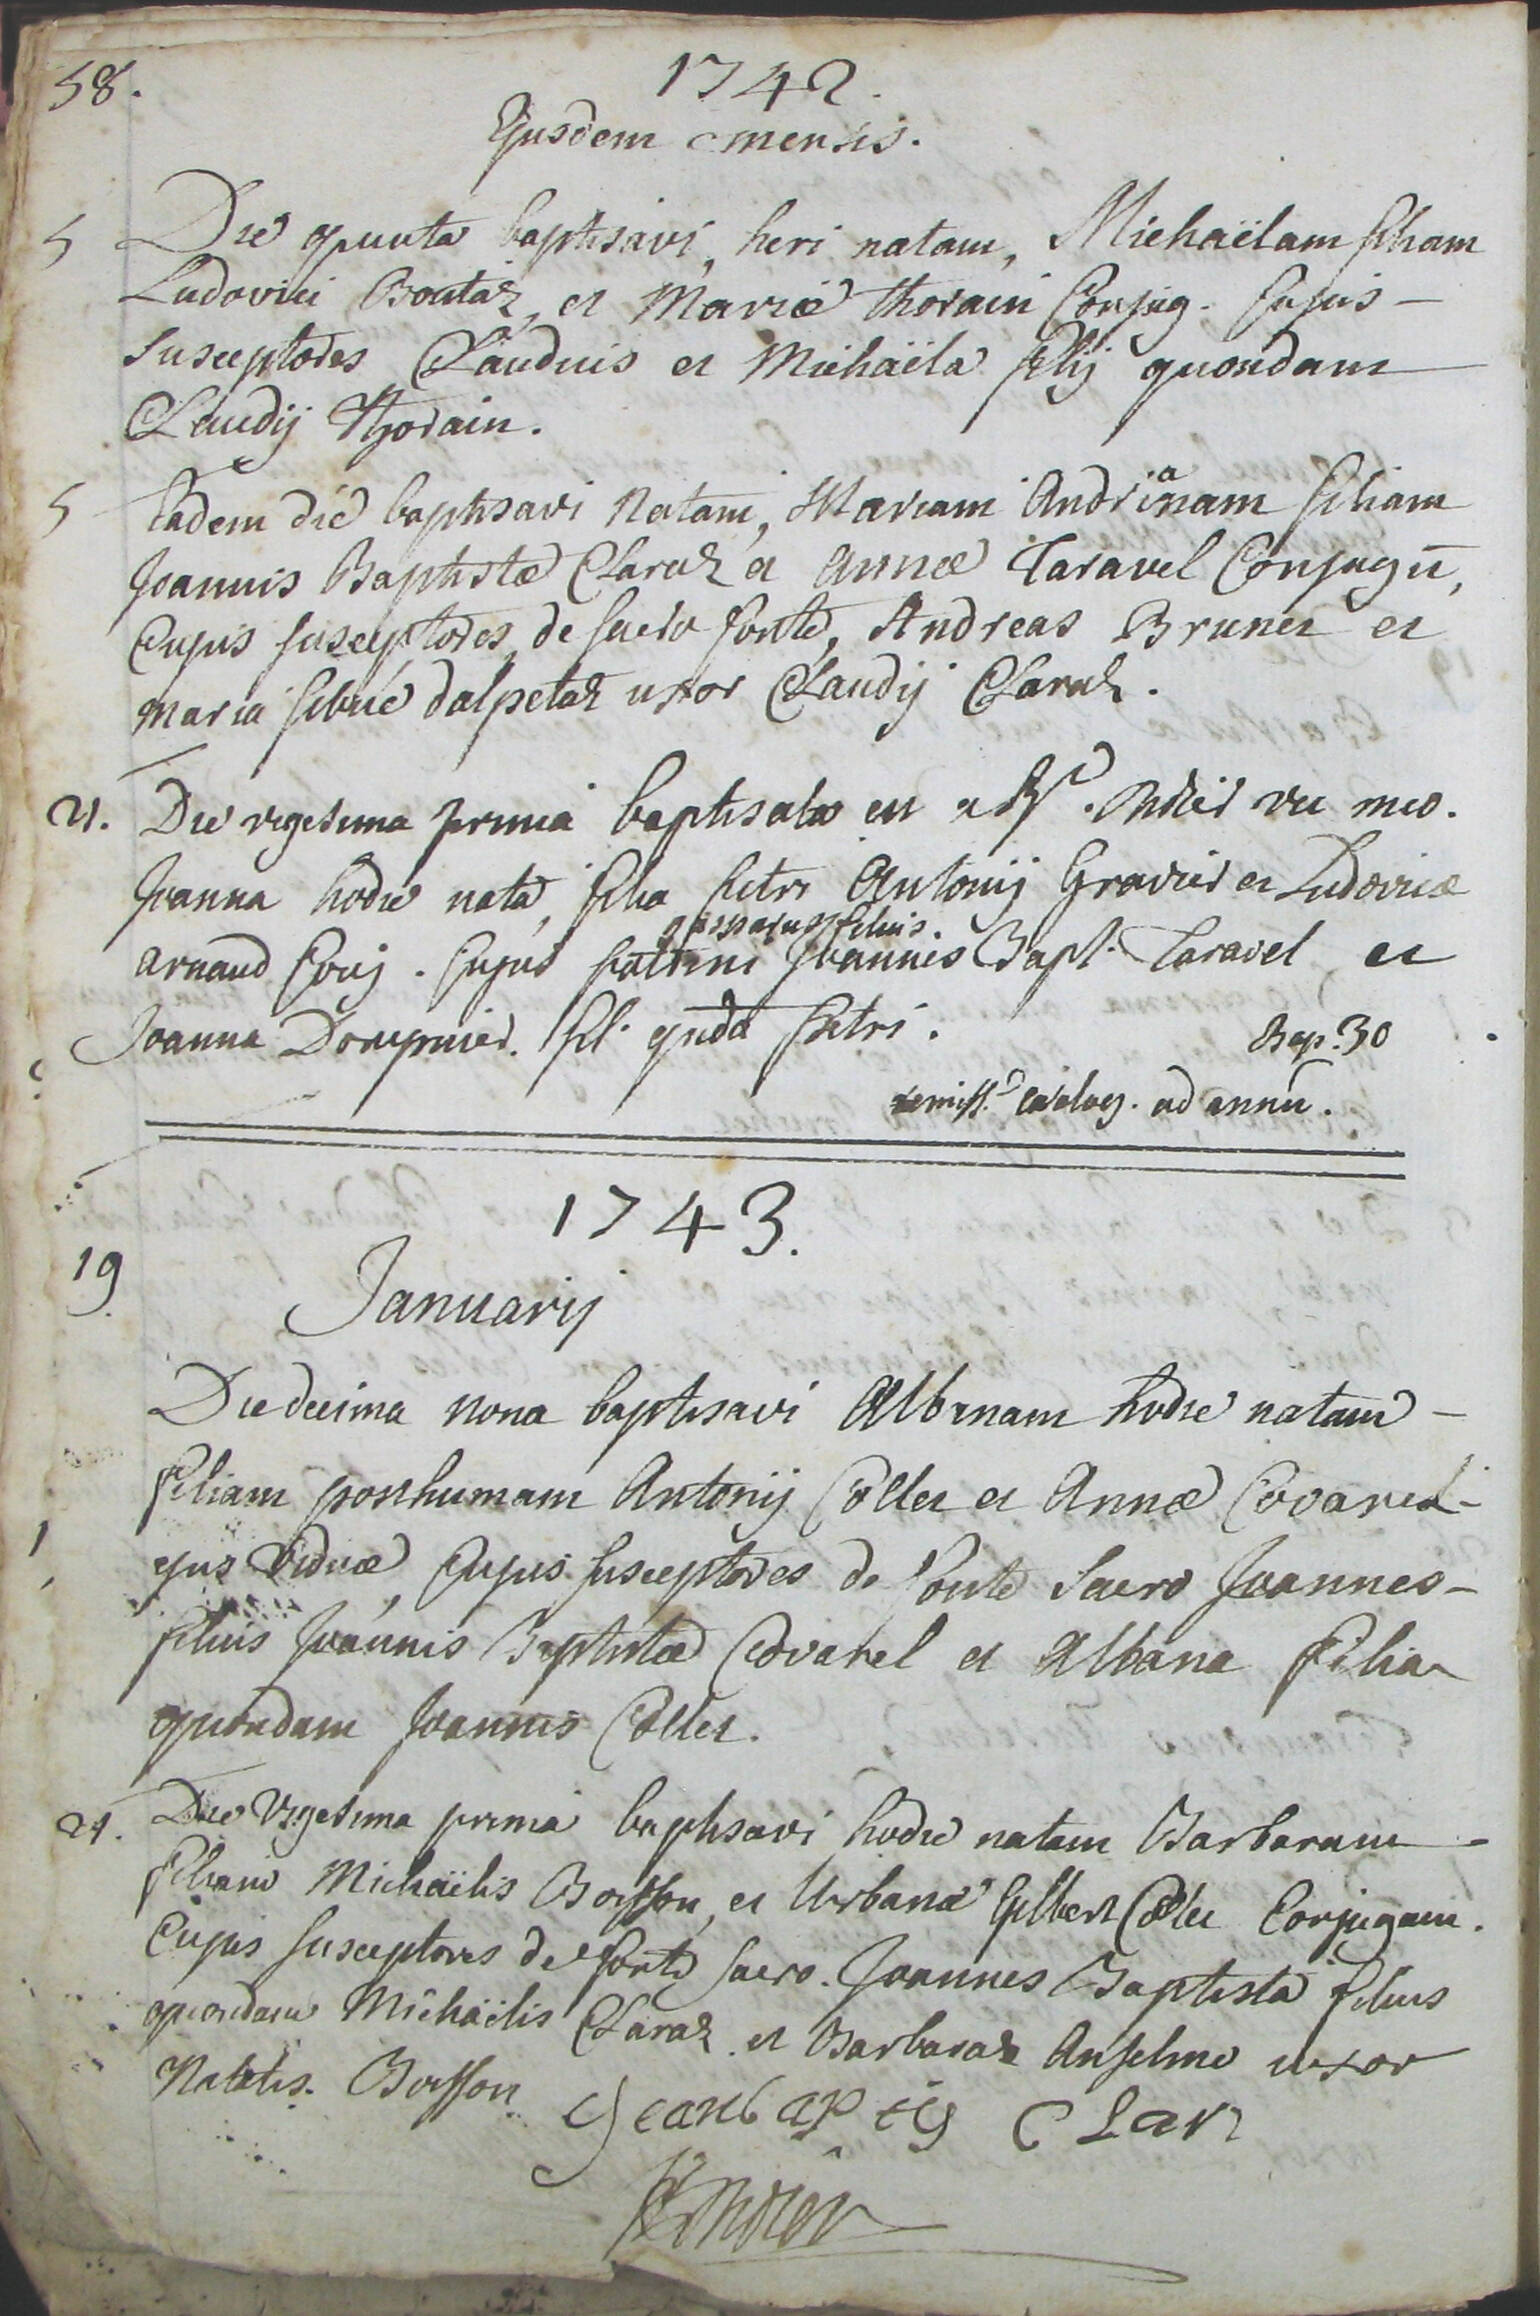 58.
1742.
Ejusdem mensis.
5 Die quinta baptisavi, heri natam, Michaëlam filiam
Ludovici Boutaz, et Mariæ thorain Conjug. Cujus
Susceptores Claudius et Michaëla filij quondam
Claudij Thorain.
5 Eadem die baptisavi Natam, Mariam Andrianam filiam
Joannis Baptistæ Claraz et Annæ Taravel Conjugū,
Cujus susceptores, de sacro fonte, Andreas Brunet et
Maria dalpetaz uxor Claudij Claraz.
21. Die vigesima prima baptisata est a Rd. vic meo.
Joanna hodie nata, filia Petri Antonij Gravier et Ludovicæ
gasparus filius.
Arnaud Conj. Cujus patrini Joannis Bapt. Taravel et
Joanna Dompnier. fil. qnda Petri.
Bap. 30
remiss. catalog. ad annū.
1743.
19
Januarij
Die decima nona baptisavi Albanam hodie natam
filiam posthumam Antonij Collet et Annæ Covarel
ejus viduæ, Cujus susceptores de fonte Sacro Joannes
filius Joannis Baptistæ Covarel et Albana filia
quondam Joannis Collet.
21. Die Vigesima prima baptisavi hodie natam Barbaram
filiam Michaëlis Boisson, et Urbanæ Gilbert Collet Conjugum.
Cujus susceptores de fonte sacro. Joannes Baptista filius
quondam Michaëlis Claraz et Barbara Anselme uxor
Natalis Boisson
Jean baptis Clar